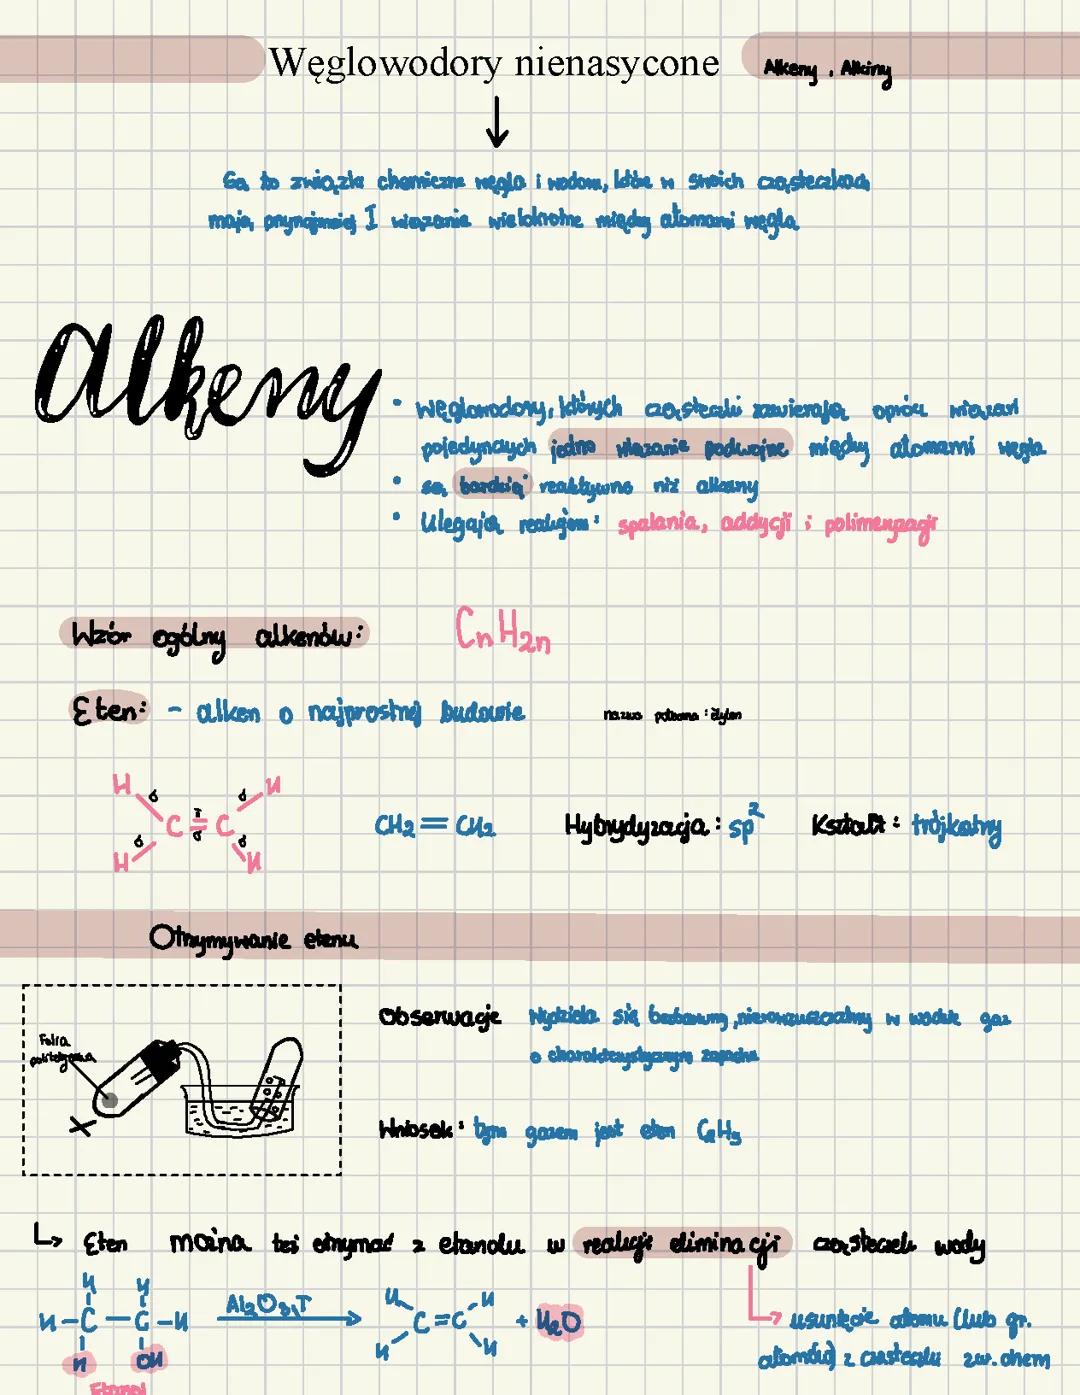 Węglowodory nienasycone
Alkeny, Alkiny
Są to związki chemiczne węgla i wodoru, które w swoich cząsteczkach
mają przynajmniej I wiązanie wielokrotne między atomami węgla
Alkeny
• węglowodory, których cząsteczki zawierają oprócz wiązań
pojedynczych jedno wiązanie podwójne między atomami węgla
• są bardziej reaktywne niż alkany
• Ulegają reakcjom: spalania, addycji i polimeryzacji
Wzór ogólny alkenów: CnH2n
Eten: - alken o najprostszej budowie
nazwa potoczna: etylen
H σ σ H
C π = σ C
H σ σ H
CH2=CH2 Hybrydyzacja: sp² Kształt: trójkątny
Otrzymywanie etenu
Folia
polietylenowa
Obserwacje Wydziela się bezbarwny, nierozpuszczalny w wodzie gaz
o charakterystycznym zapachu
Wniosek: tym gazem jest eten
↳ Eten można też otrzymać z etanolu w reakcji eliminacji cząsteczki wody
H H H H
H-C-C-H Al2O3,T → C=C + H2O
H OH H H
Etanol
→ usunięcie atomu (lub gr.
atomów) z cząsteczki zw. chem